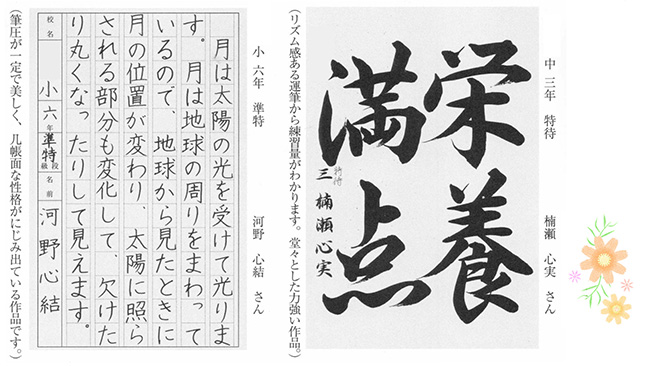 中 三年 特待 楠瀬 心実 さん
栄養
満点
特待
三 楠瀬心実
（リズム感ある運筆から練習量がわかります。堂々とした力強い作品。）
小 六年 準特 河野 心結 さん
月は太陽の光を受けて光りま
す。月は地球の周りをまわって
いるので、地球から見たときに
月の位置が変わり、太陽に照ら
される部分も変化して、欠けた
り丸くなったりして見えます。
校名 小 六年 準特 段級 名前 河野心結
（筆圧が一定で美しく、几帳面な性格がにじみ出ている作品です。）